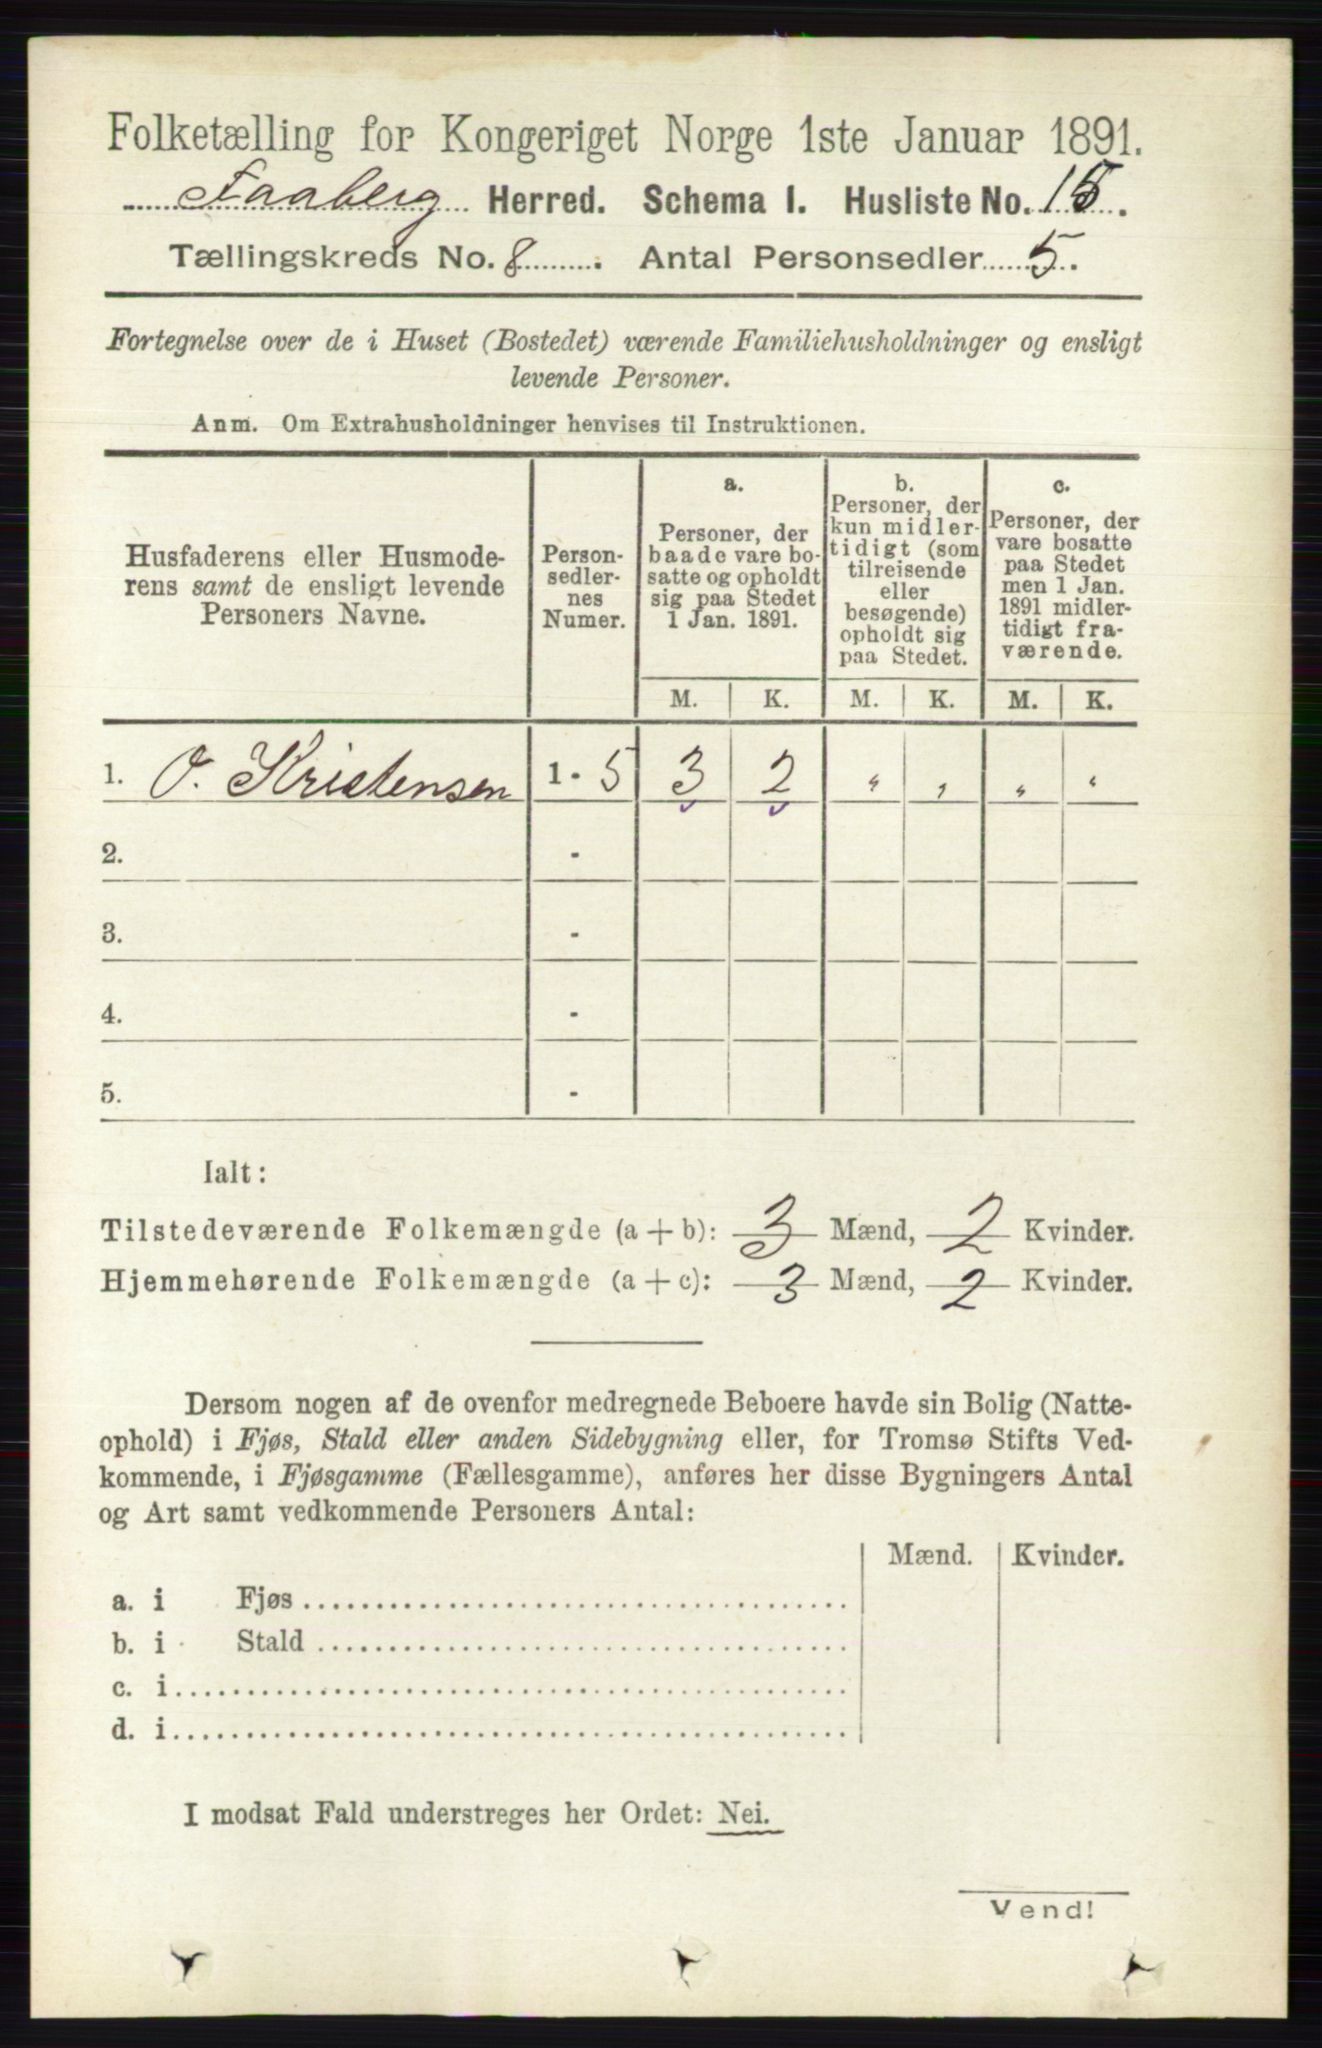 Folketælling for Kongeriget Norge 1ste Januar 1891.
Faaberg Herred. Schema I. Husliste No. 15.
Tællingskreds No. 8. Antal Personsedler 5.
Fortegnelse over de i Huset (Bostedet) værende Familiehusholdninger og ensligt
levende Personer.
Anm. Om Extrahusholdninger henvises til Instruktionen.
Husfaderens eller Husmode-
rens samt de ensligt levende
Personers Navne.
Person-
sedler-
nes
Numer.
a.
Personer, der
baade vare bo-
satte og opholdt
sig paa Stedet
1 Jan. 1891.
b.
Personer, der
kun midler-
tidigt (som
tilreisende
eller
besøgende)
opholdt sig
paa Stedet.
c.
Personer, der
vare bosatte
paa Stedet
men 1 Jan.
1891 midler-
tidigt fra-
værende.
M. K. M. K. M. K.
1. O. Kristensen 1 - 5 3 2 " " " "
2. -
3. -
4. -
5. -
Ialt:
Tilstedeværende Folkemængde (a + b): 3 Mænd, 2 Kvinder.
Hjemmehørende Folkemængde (a + c): 3 Mænd, 2 Kvinder.
Dersom nogen af de ovenfor medregnede Beboere havde sin Bolig (Natte-
ophold) i Fjøs, Stald eller anden Sidebygning eller, for Tromsø Stifts Ved-
kommende, i Fjøsgamme (Fællesgamme), anføres her disse Bygningers Antal
og Art samt vedkommende Personers Antal:
Mænd. Kvinder.
a. i Fjøs
b. i Stald
c. i
d. i
I modsat Fald understreges her Ordet: Nei.
Vend!